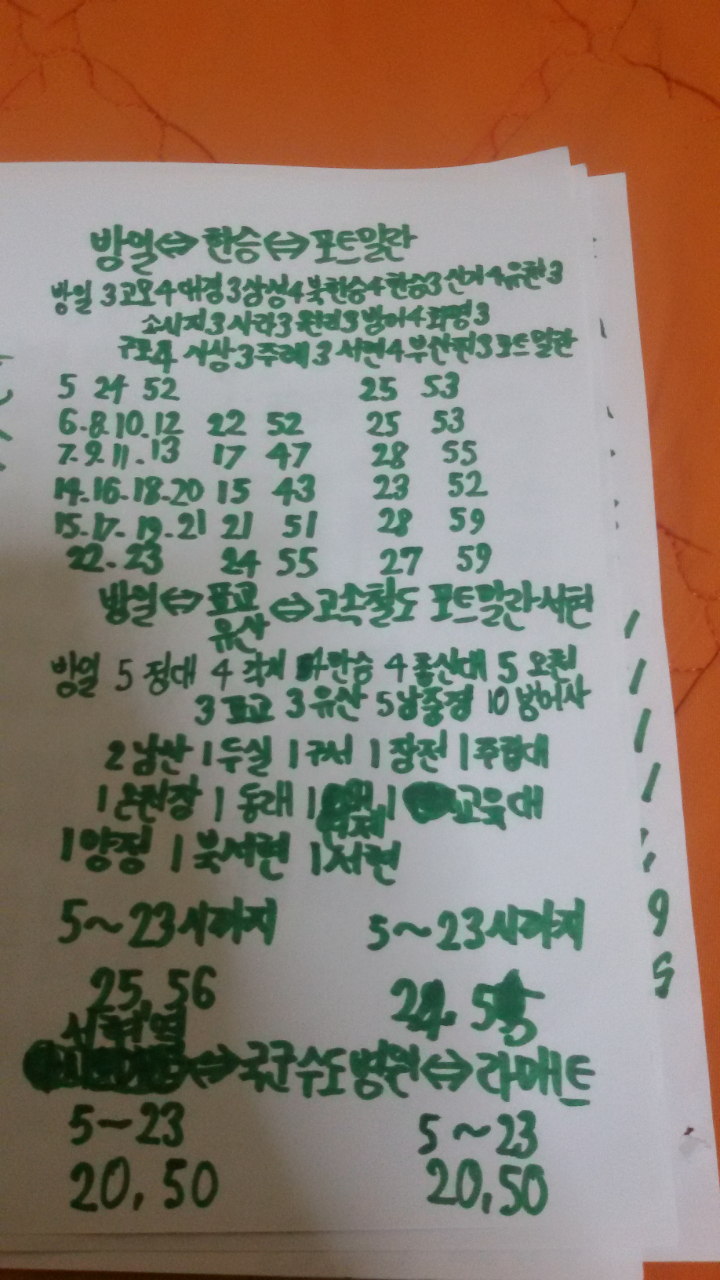 방일⇔한승⇔포트밀란
방일 3고모4대경3삼성4북한승4한승3신거4유천3
소사지3사라3원리3밤이4화명3
구포4 사상3주례3 서면4부산진3포트밀란
5 24 52 25 53
6.8.10.12 22 52 25 53
7.9.11.13 17 47 28 55
14.16.18.20 15 43 23 52
15.17.19.21 21 51 28 59
22.23 24 55 27 59
방일⇔표교 ⇔고속철도 포트말란서현
유산
방일 5 정대 4 각지 만승 4 홍신대 5 오천
3 표교 3 유산 5남중경 10 방어사
2남산 1두실 1구서 1장전 1주합대
1온천장 1동래 1거제 1 교육대
1양정 1북서면 1서현
5~23시까지 5~23시까지
25, 56 24. 5
서현역
⇔국군수도병원⇔라매트
5~23 5~23
20, 50 20,50
9
5